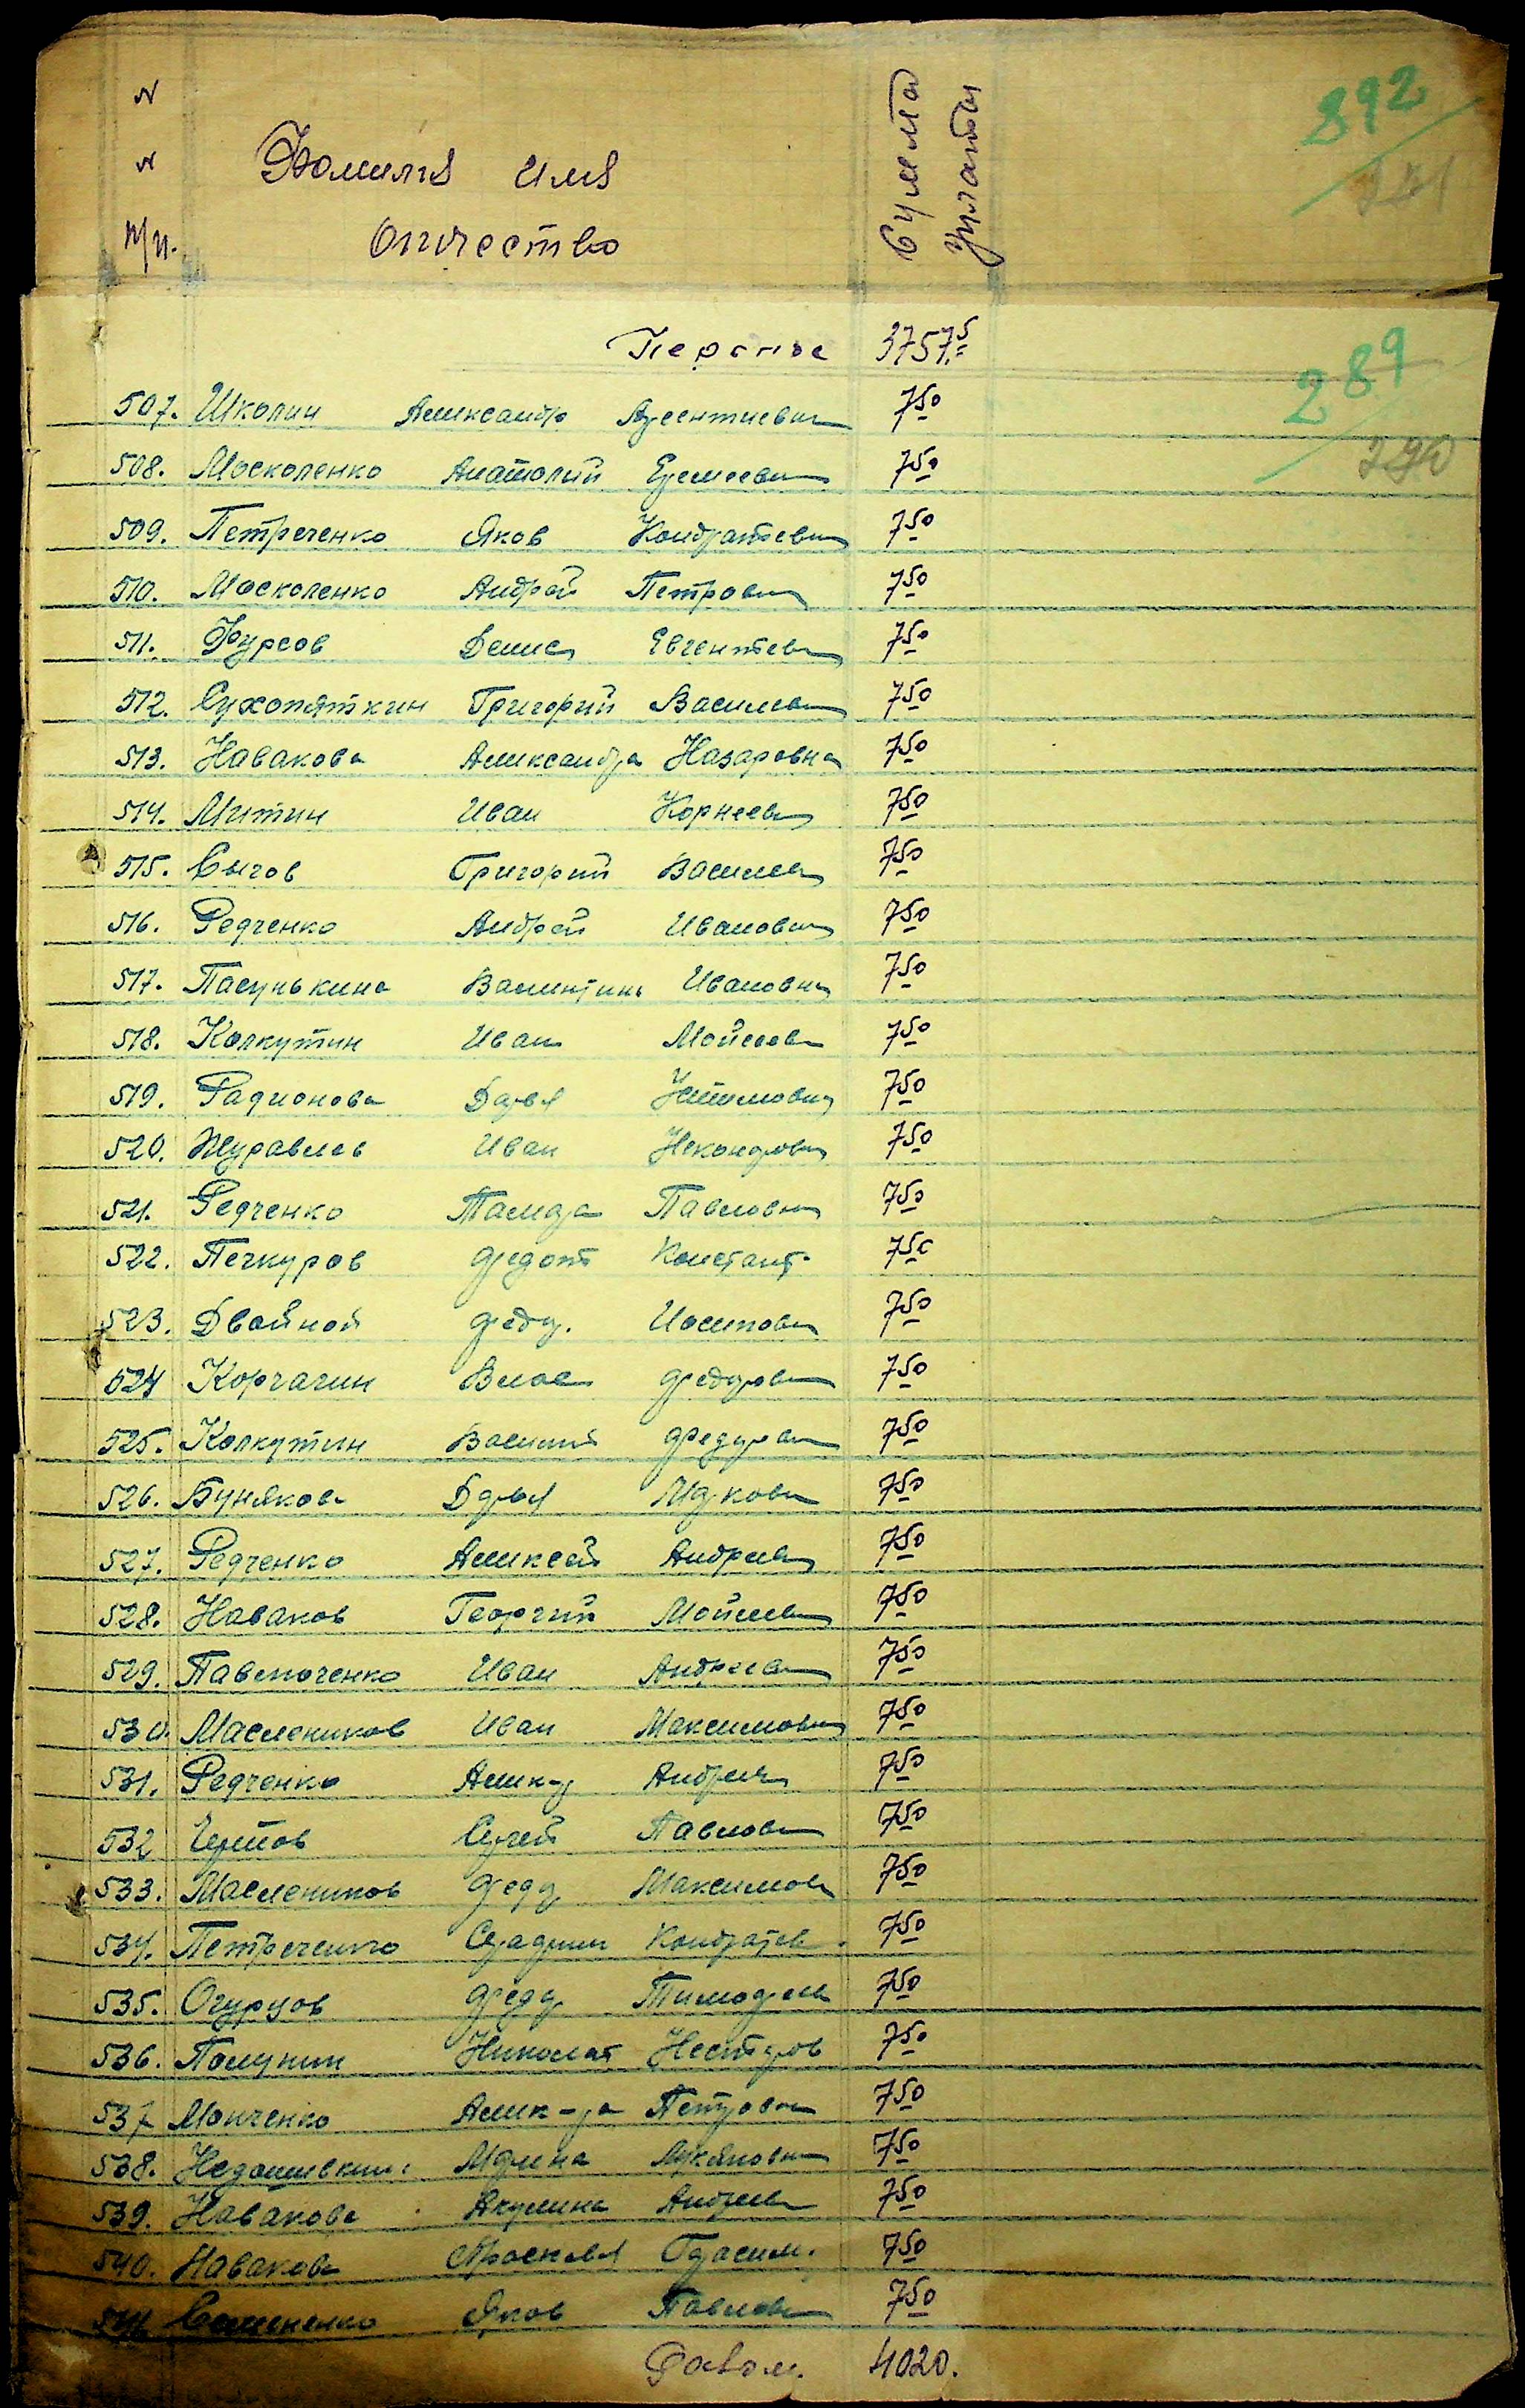 N
N
п/п.
Фамилия имя
отчество
Сумма
уплаты
892
289
290
3757.5
507. Школин Александр 7 50
508. Москаленко Анатолий Еремеевич 7 50
509. Петреченко Яков Кондратьевич 7 50
510. Москаленко Андрей Петрович 7 50
511. Фурсов Денис 7 50
512. Сухопяткин Григорий Василев 7 50
513. Навакова Александра Назаровна 7 50
514. Митин Иван Корнеев 7 50
515. Сычов Григорий Василев 7 50
516. Редченко Андрей Иванович 7 50
517. Пасунькина Валентина Ивановна 7 50
518. Колкутин Иван Мойсеев 7 50
519. Радионова Дарья 7 50
520. Журавлев Иван 7 50
521. Редченко Тамара Павловна 7 50
522. Печкуров Федот Констант. 7 50
523. Двойной Федор. Иосипович 7 50
524 Корчагин Влас Федоров 7 50
525. Колкутин Василий Федоров 7 50
526. Бунякова Дарья Марковн 7 50
527. Редченко Алексей Андреев 7 50
528. Наваков Георгий Мойсеев 7 50
529. Павлюченко Иван Андреев 7 50
530. Маслеников Иван Максимович 7 50
531. Редченко Алек-р Андреев 7 50
532 Сергей Павлов 7 50
533. Маслеников Федор Максимов 7 50
534. Петреченко Кондратев 7 50
535. Огурцов Федор Тимофеев 7 50
536. Полунин Николай Нестеров 7 50
537 Манченко Алек-ра Петровна 7 50
538. Марина Лукяновн 7 50
539. Навакова Акулина Андреев 7 50
540. Навакова Просковя Герасим. 7 50
541 Семененко Яков Павлов 7 50
4020.